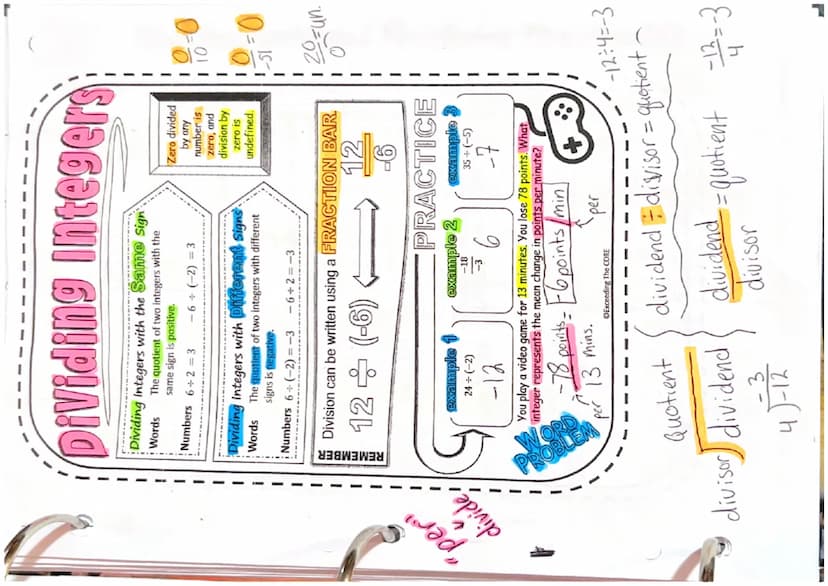 Dividing Integers
Dividing Integers with the Same Sign
Words The quotient of two integers with the
same sign is positive.
Numbers 6 ÷ 2 = 3 −6 ÷ (−2) = 3
Dividing Integers with Different Signs
Words The quotient of two integers with different
signs is negative.
Numbers 6 ÷ (−2) = −3 −6 ÷ 2 = −3
Zero divided
by any
number is
zero, and
division by
zero is
undefined.
0/10 = 0
0/-51 = 0
20/0 = un.
REMEMBER
Division can be written using a FRACTION BAR.
12 ÷ (-6)
12
-6
PRACTICE
example 1
24 ÷ (−2)
-12
example 2
−18
−3
6
example 3
35 ÷ (−5)
-7
WORD
PROBLEM
You play a video game for 13 minutes. You lose 78 points. What
integer represents the mean change in points per minute?
per
-78 points = -6 points/min
13 mins.
per
©Exceeding the CORE
"per"
divide
-12 ÷ 4 = -3
dividend ÷ divisor = quotient
quotient
divisor dividend
dividend = quotient
divisor
-12/4 = -3
-3
4)-12